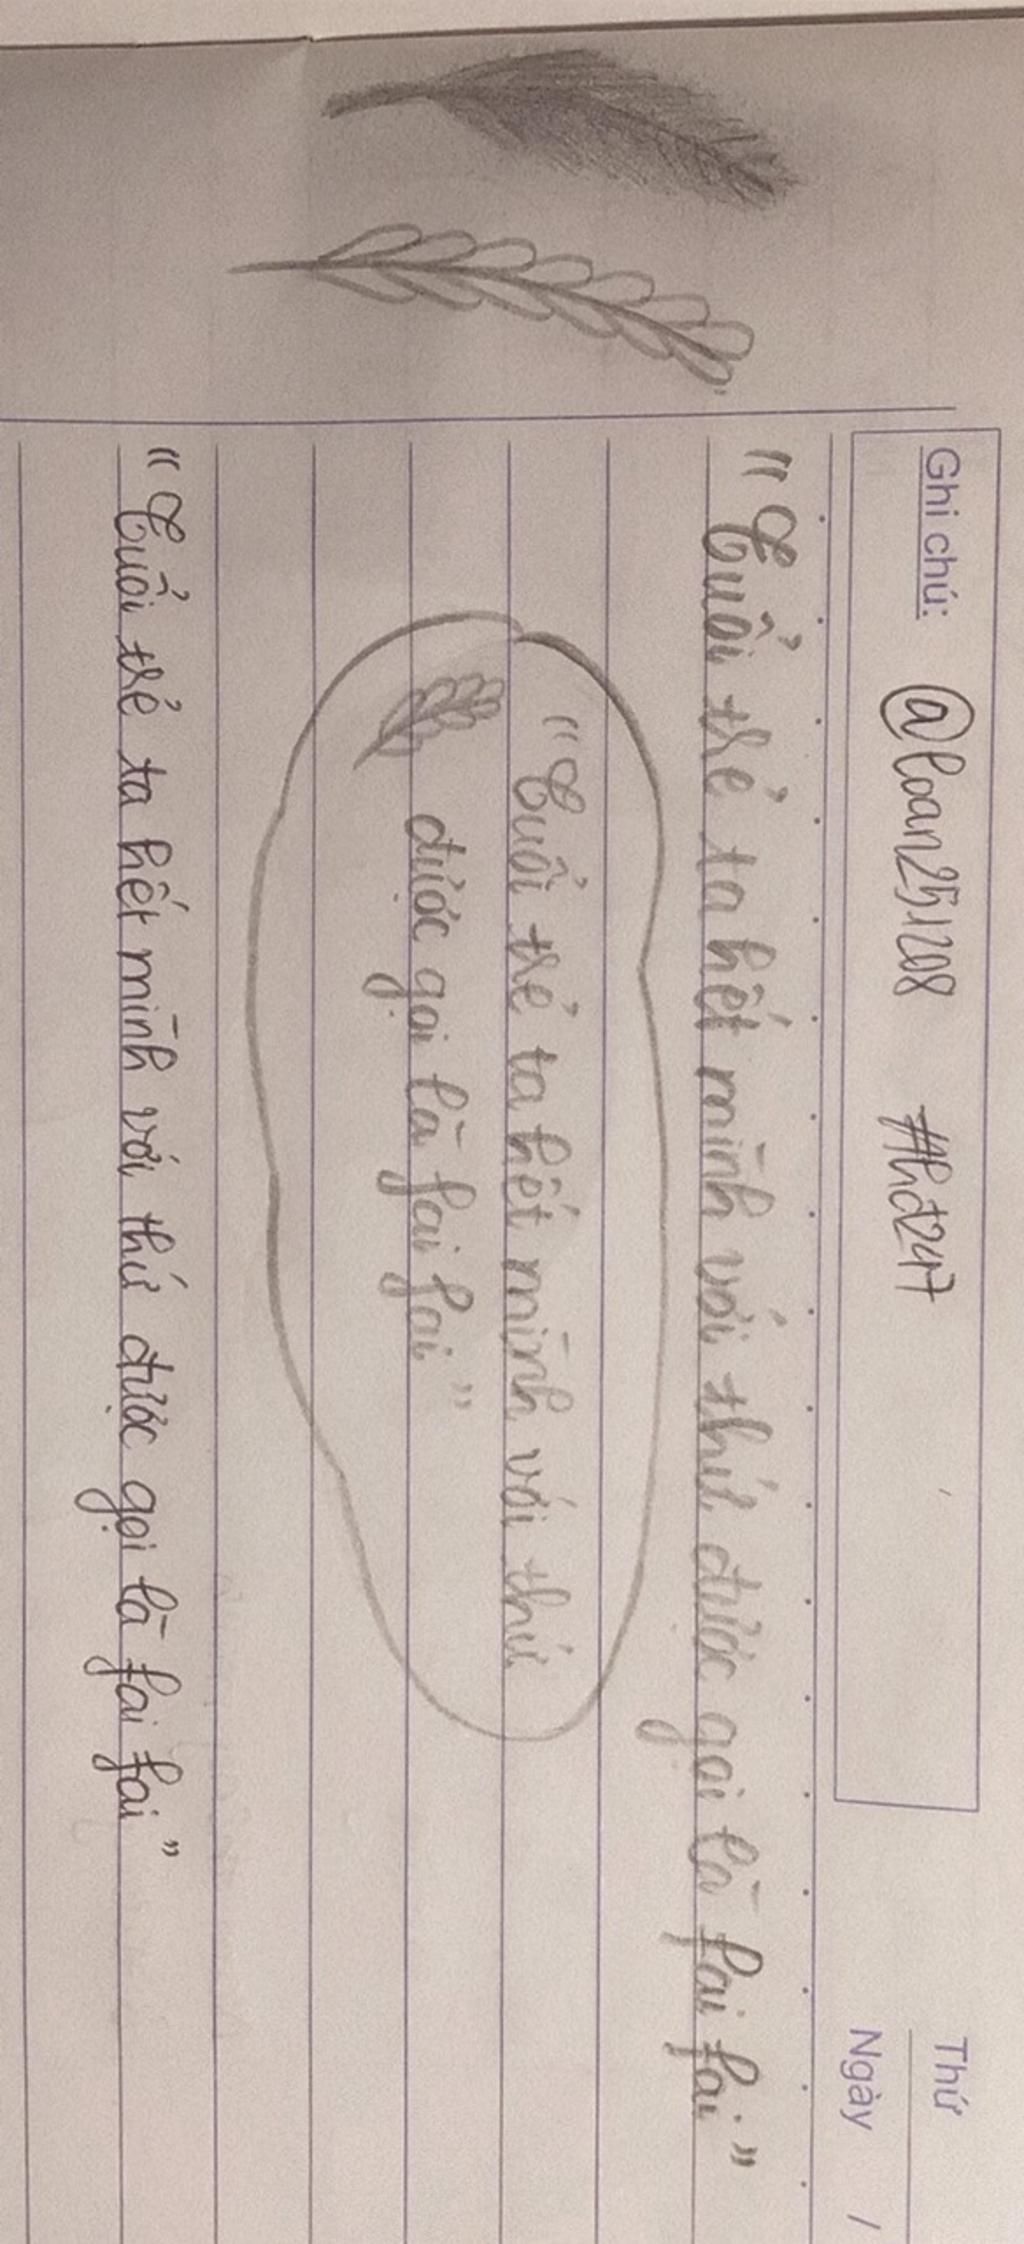 Ghi chú: @loan251208 #hd247
Thứ
Ngày /
"Tuổi trẻ ta hết mình với thứ được gọi là fai fai"
"Tuổi trẻ ta hết mình với thứ
được gọi là fai fai"
"Tuổi trẻ ta hết mình với thứ được gọi là fai fai"